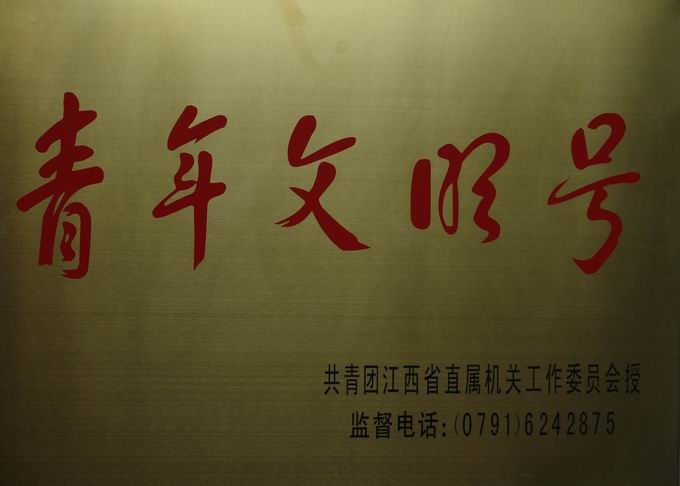 青年文明号
共青团江西省直属机关工作委员会授
监督电话:(0791)6242875